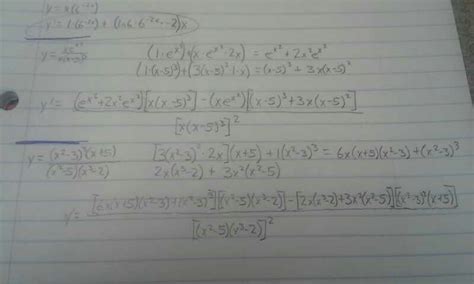 y = x(6^-2x)
y' = 1·(6^-2x) + (ln6·6^-2x·-2)x
y = xe^x² / x(x-5)³    (1·e^x²)+(x·e^x²·2x) = e^x² + 2x²e^x²
(1·(x-5)³)+(3(x-5)²·1·x) = (x-5)³ + 3x(x-5)²
y' = (e^x²+2x²e^x²)[x(x-5)³] - (xe^x²)[(x-5)³+3x(x-5)²] / [x(x-5)³]²
y = (x²-3)³(x+5) / (x²-5)(x³-2)    [3(x²-3)²·2x](x+5) + 1(x²-3)³ = 6x(x+5)(x²-3)+(x²-3)³
2x(x³-2) + 3x²(x²-5)
y' = [6x(x+5)(x²-3)+(x²-3)³][(x²-5)(x³-2)] - [2x(x³-2)+3x²(x²-5)][(x²-3)³(x+5)] / [(x²-5)(x³-2)]²